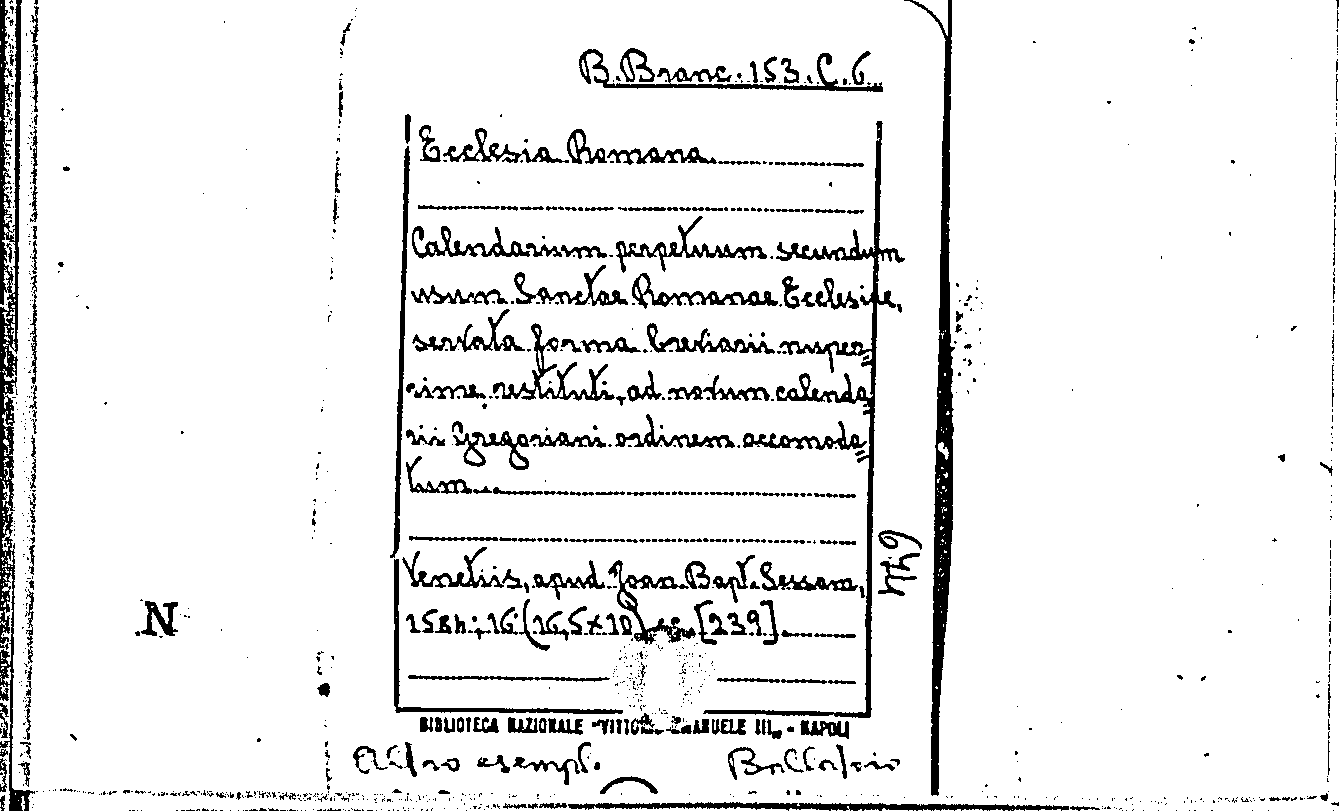 B. Branc. 153. C. 6
Ecclesia Romana
Calendarium perpetuum secundum
usum Sanctae Romanae Ecclesiae,
servata forma breviarii nuper=
rime restituti, ad novum calenda=
rii Gregoriani ordinem accomoda=
tum...
Venetiis, apud Joan. Bapt. Sessam,
1584; 16° (16,5x10) cc. [239].
644
N
BIBLIOTECA NAZIONALE "VITTORIO EMANUELE III" - NAPOLI
Altro esempl.